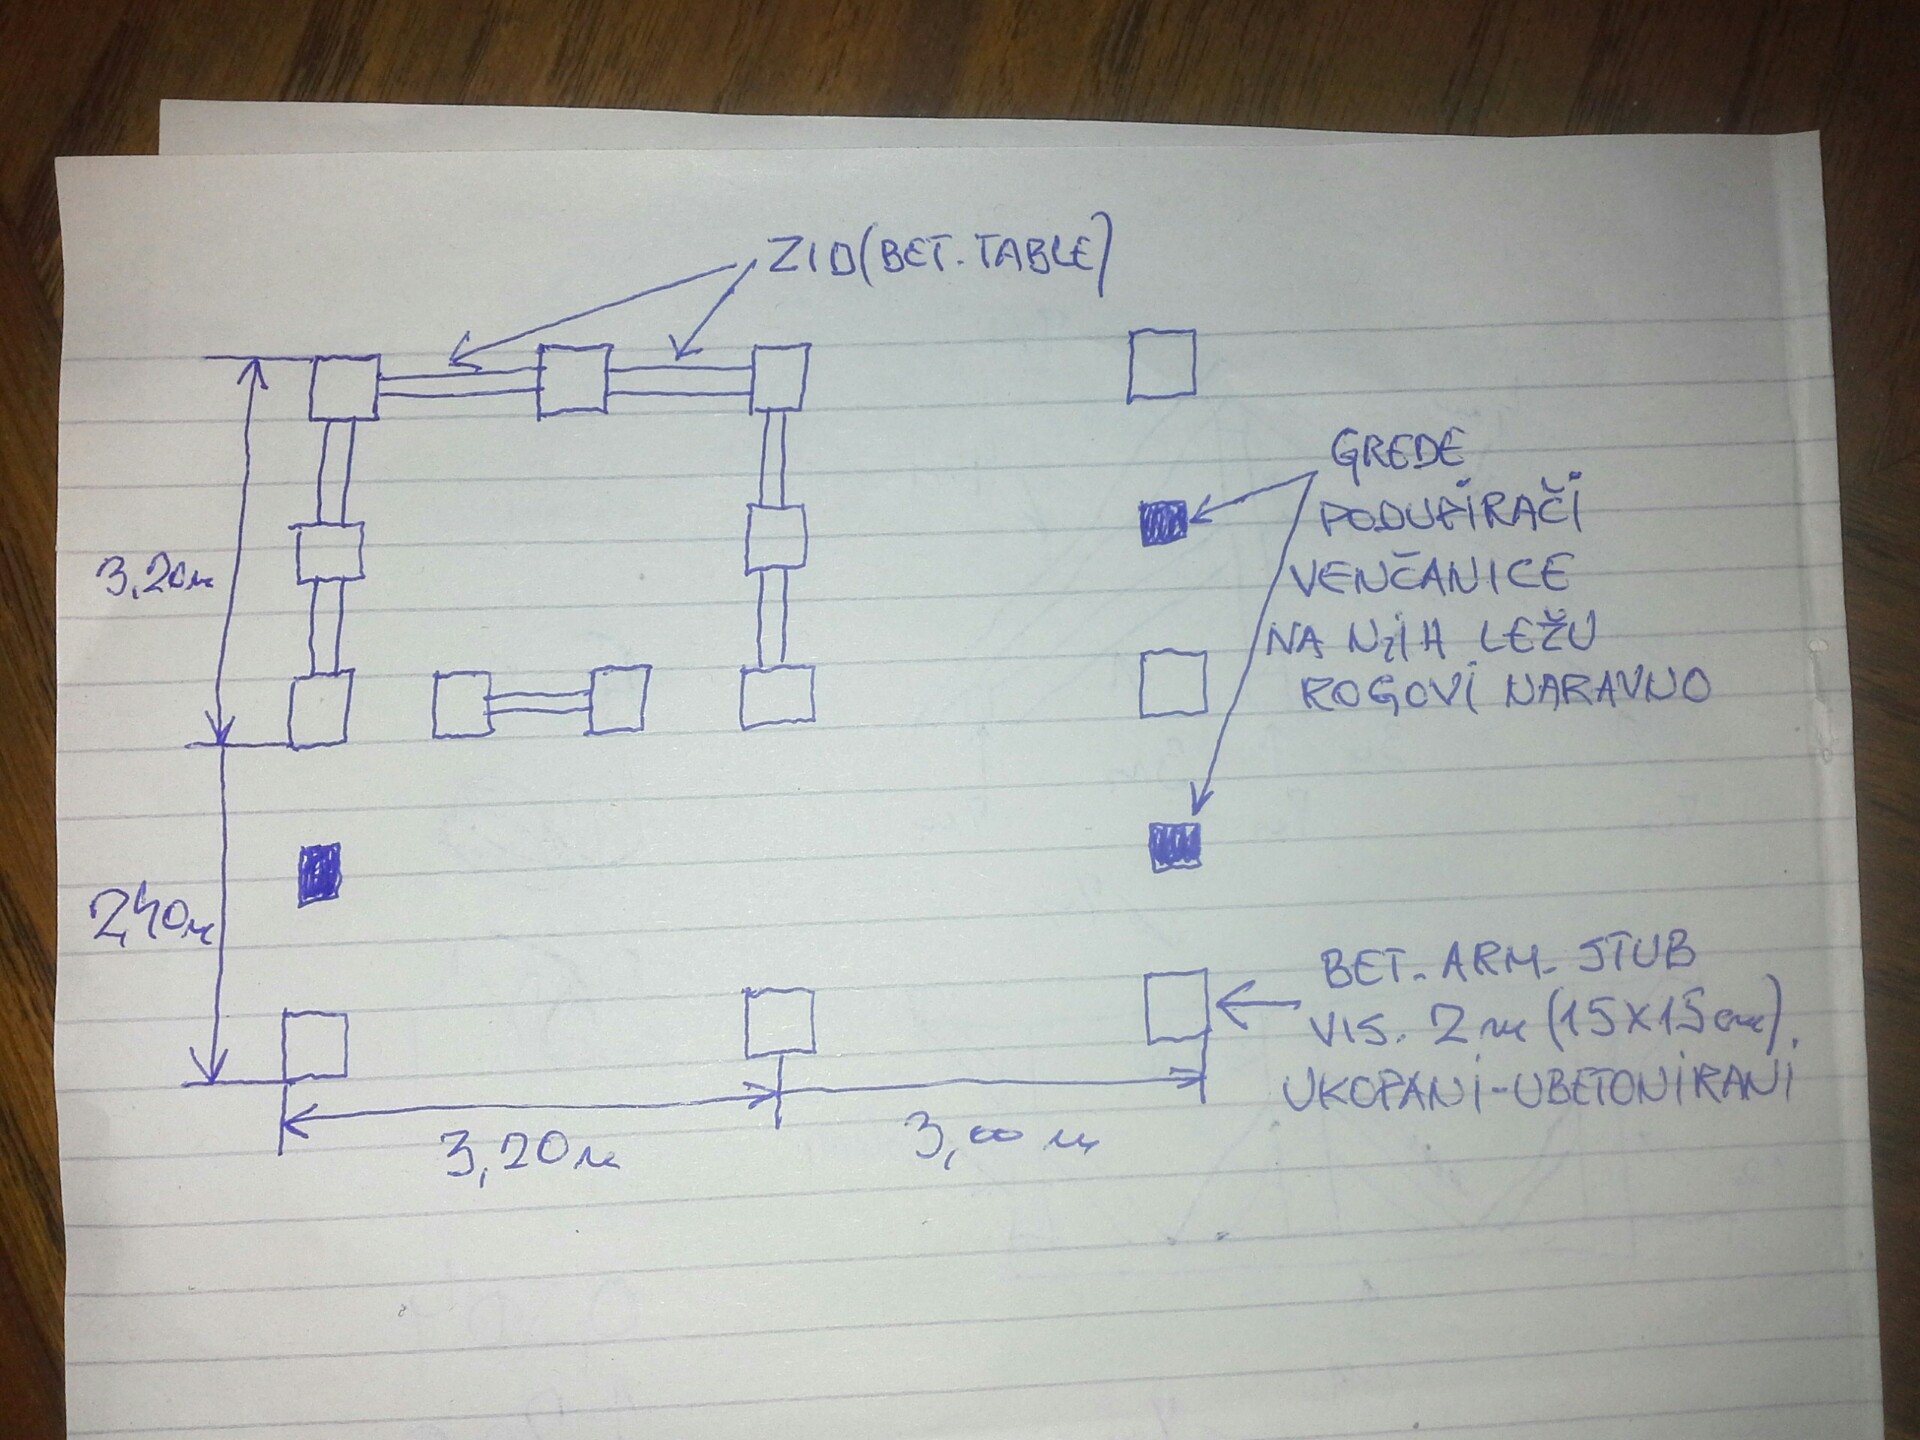 ZID(BET.TABLE)
GREDE
PODUPIRAČI
VENČANICE
NA NJIH LEŽU
ROGOVI NARAVNO
3,20m
2,40m
BET. ARM. STUB
VIS. 2m (15x15cm)
UKOPANI-UBETONIRANI
3,20m
3,00m